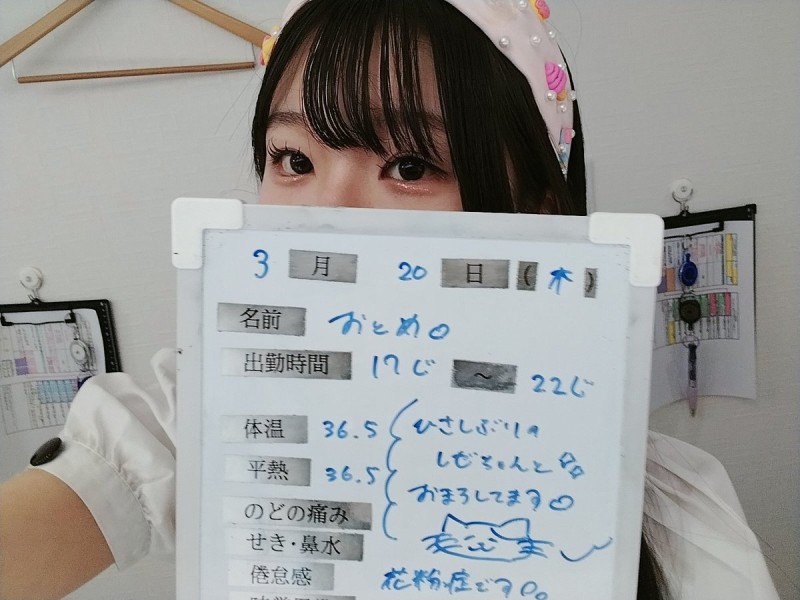 3月 20日(木)
名前 おとめ
出勤時間 17じ ~ 22じ
体温 36.5
平熱 36.5
ひさしぶりの
しぜちゃんと
おまろしてます
のどの痛み
せき・鼻水
倦怠感
花粉症です